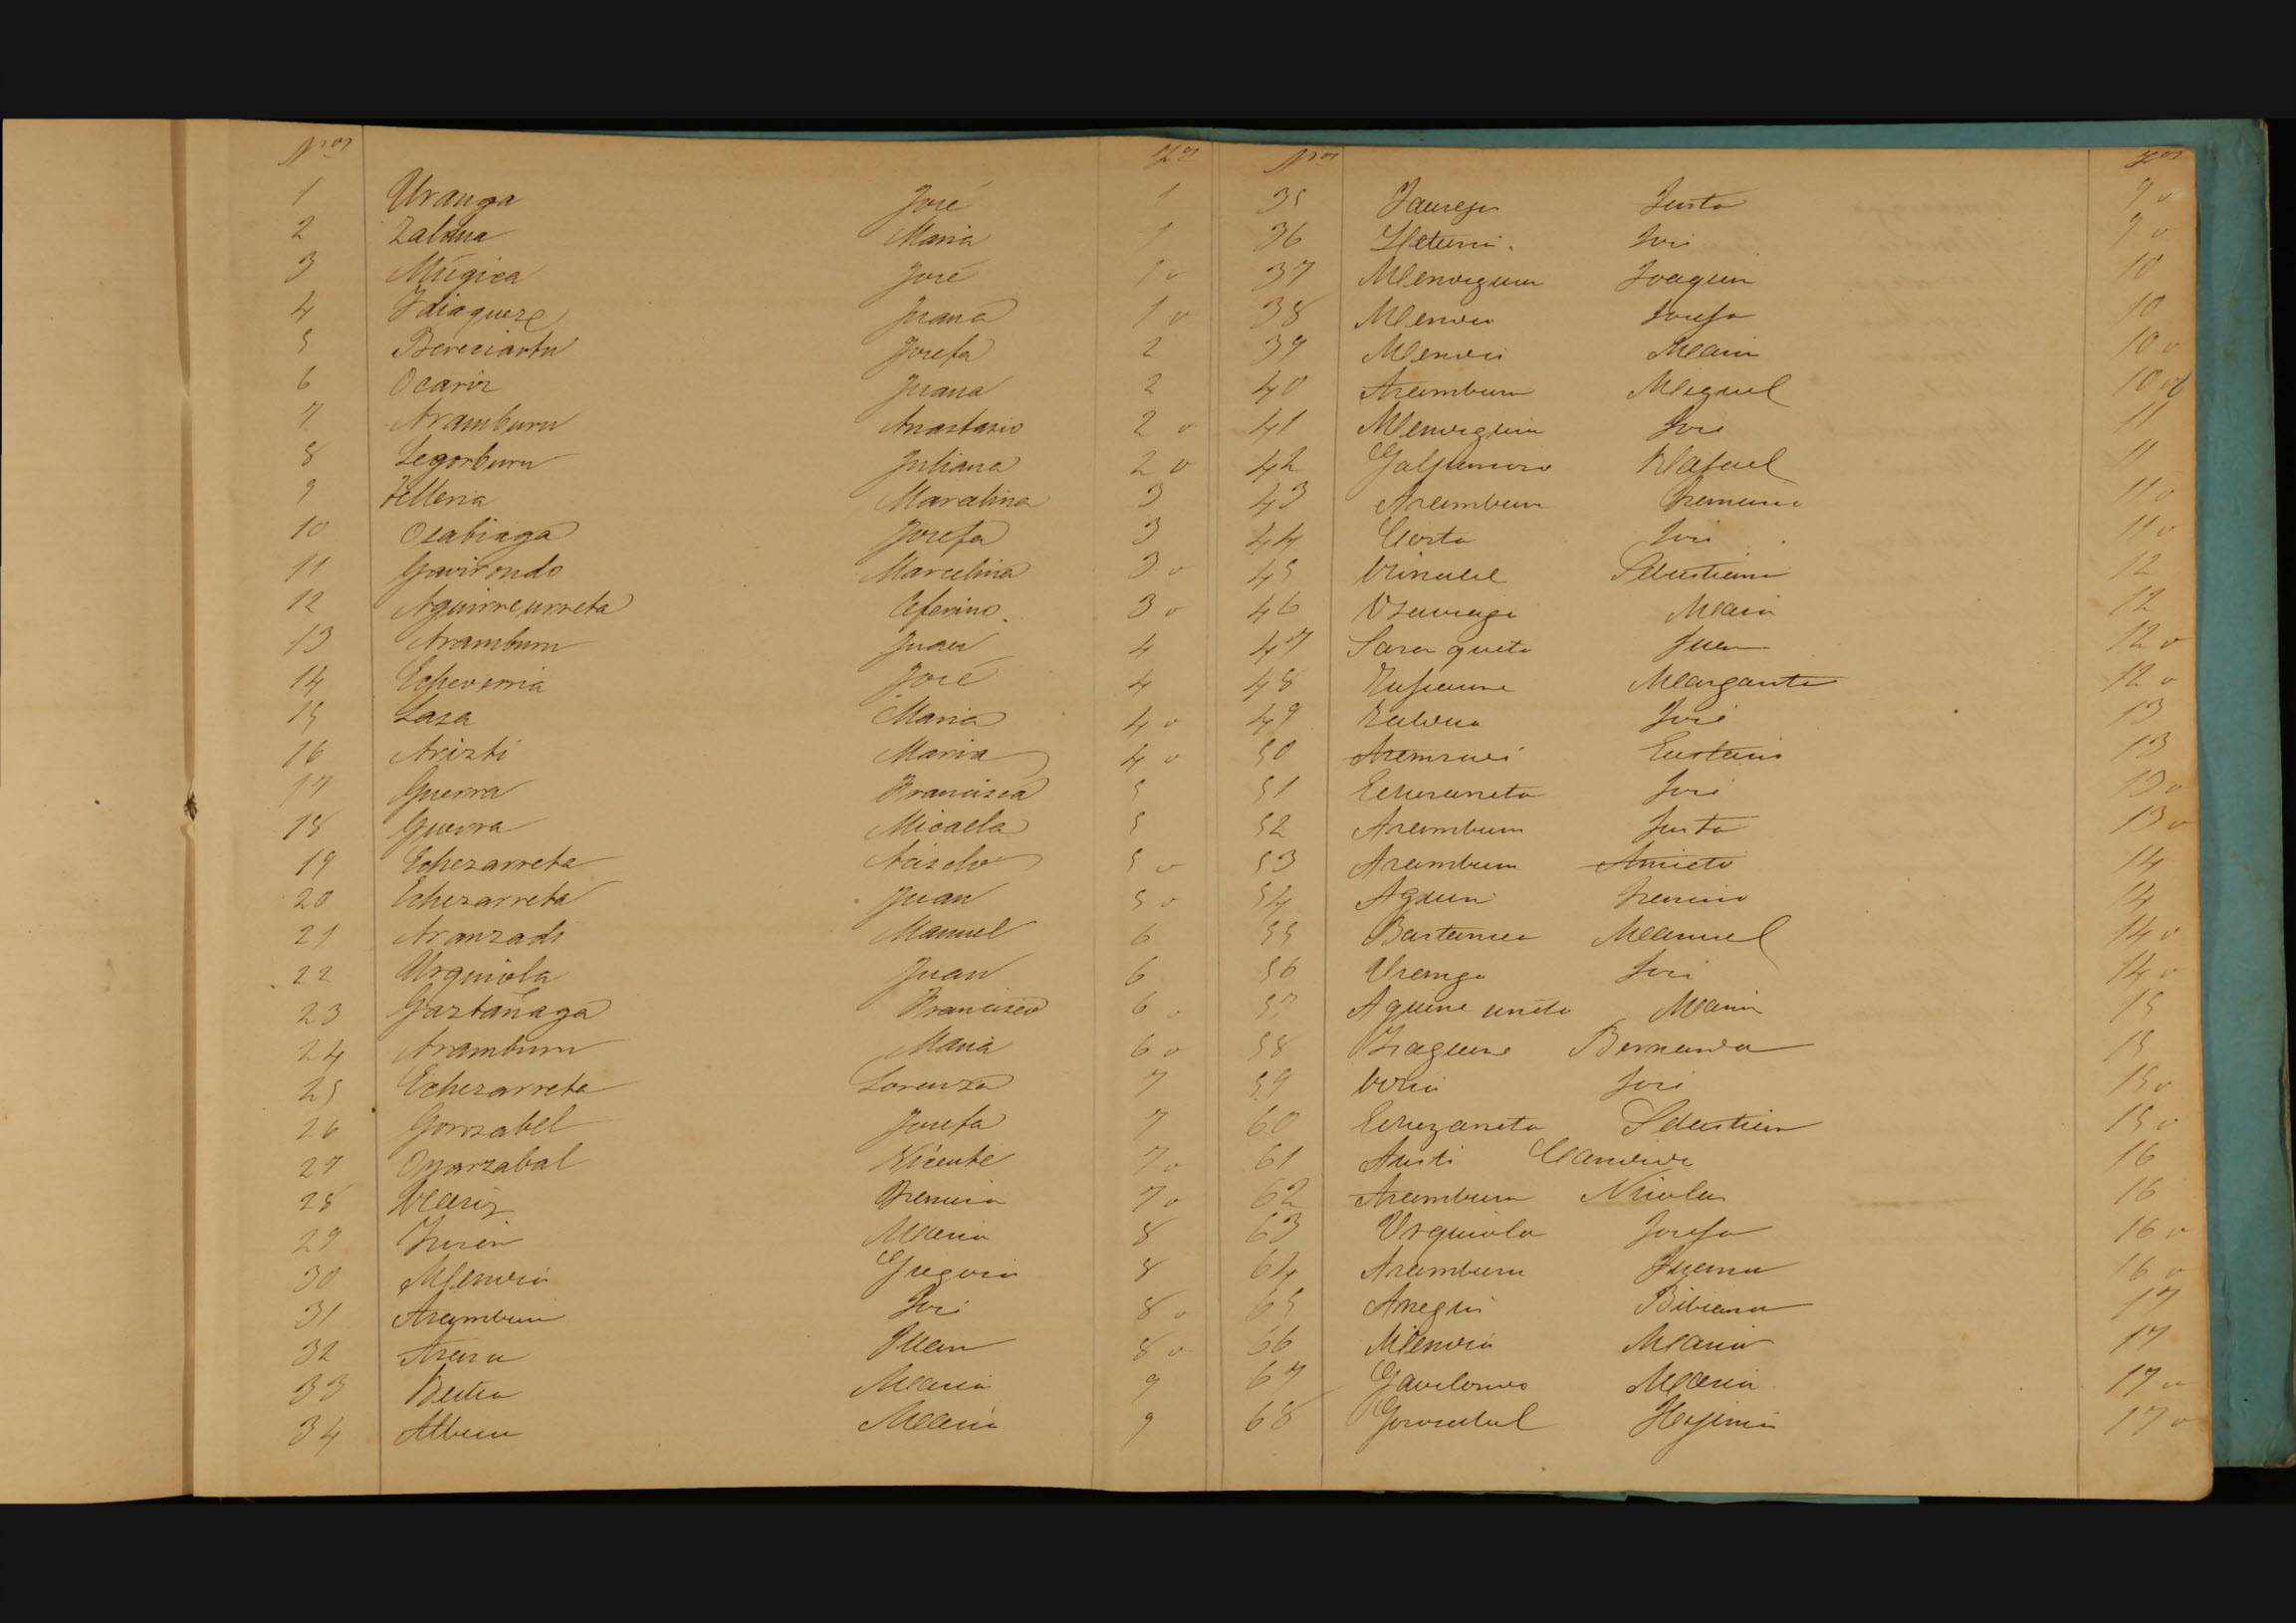 Nros
Fos
1 Uranga José 1
2 Zaldua Maria 1
3 Múgica José 1 v
4 Idiaquez Juana 1 v
5 Bereciartu Josefa 2
6 Ocariz Juana 2
7 Aramburu Anastasio 2 v
8 Legorburu Juliana 2 v
9 Telleria Marcelina 3
10 Osabiaga Josefa 3
11 Gavirondo Marcelina 3 v
12 Aguirreurreta Ceferino 3 v
13 Aramburu Juan 4
14 Echeverria José 4
15 Lasa Maria 4 v
16 Arizti Maria 4 v
17 Guerra Francisca 5
18 Guerra Micaela 5
19 Echezarreta 5 v
20 Echezarreta Juan 5 v
21 Aranzadi Manuel 6
22 Urquiola Juan 6
23 Gaztañaga Francisco 6 v
24 Aramburu Maria 6 v
25 Echezarreta Lorenza 7
26 Gorozabel Josefa 7
27 Oyarzabal Vicente 7 v
28 Ocariz 7 v
29 Maria 8
30 Mendia Gregoria 8
31 Aramburu José 8 v
32 Juan 8 v
33 Maria 9
34 Maria 9
Nros
Fos
35 Jauregui Justo 9 v
36 José 9 v
37 Mendiguren Joaquin 10
38 Mendia Josefa 10
39 Mendia Maria 10 v
40 Aramburu Miguel 10 v
41 Mendiguren José 11
42 Galfarsoro Rafael 11
43 Aramburu 11 v
44 Corta José 11 v
45 Sebastiana 12
46 Maria 12
47 Sarasqueta Juan 12 v
48 Zufiaurre Margarita 12 v
49 Zaldua José 13
50 13
51 Echezarreta José 13 v
52 Aramburu Justo 13 v
53 Aramburu Aniceto 14
54 14
55 Bastarrica Manuel 14 v
56 Uranga José 14 v
57 Aguirreurreta Maria 15
58 Bernarda 15
59 José 15 v
60 Echezarreta Sebastian 15 v
61 Aristi 16
62 Aramburu Nicolas 16
63 Urquiola Josefa 16 v
64 Aramburu Juana 16 v
65 Arregui Bibiana 17
66 Mendia Maria 17
67 Gavilondo Maria 17 v
68 Gorozabel Higinia 17 v